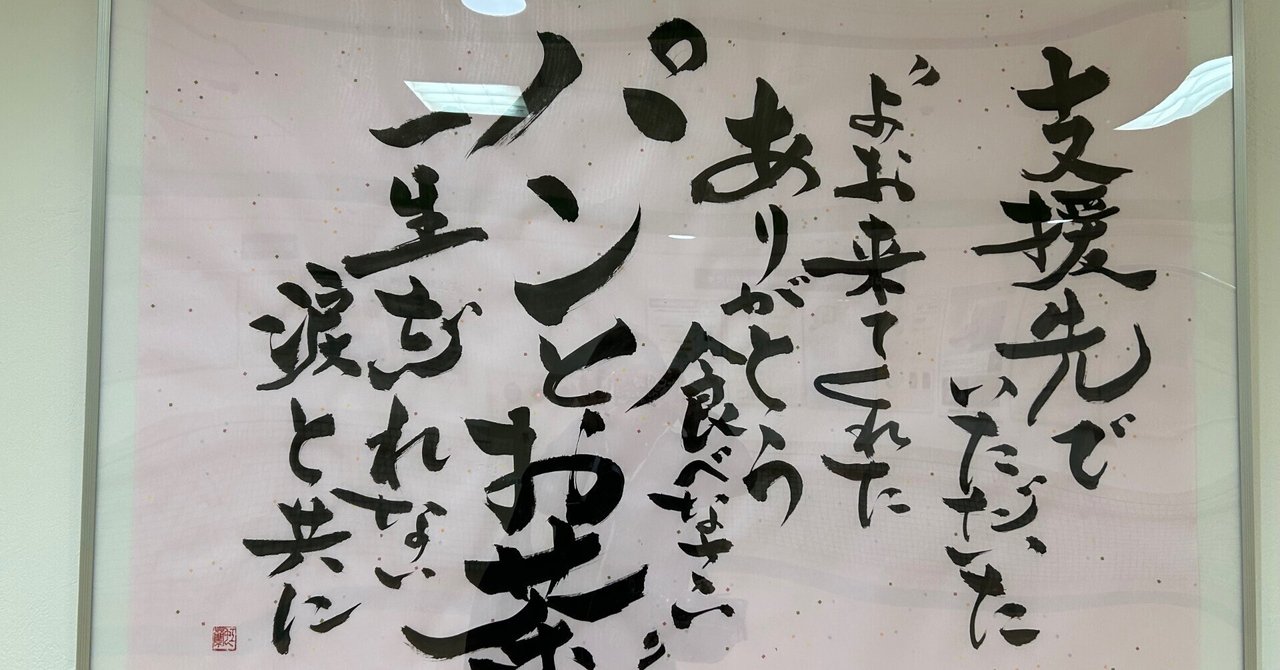 支援先で
いただいた
“よお来てくれた
ありがとう
食べなさい”
パンとお茶
一生忘れない
涙と共に